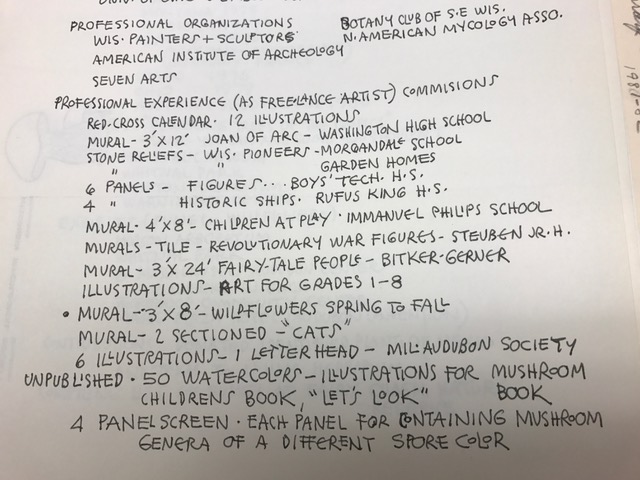 PROFESSIONAL ORGANIZATIONS
WIS. PAINTERS + SCULPTORS
AMERICAN INSTITUTE OF ARCHEOLOGY
SEVEN ARTS
BOTANY CLUB OF S.E WIS.
N. AMERICAN MYCOLOGY ASSO.
PROFESSIONAL EXPERIENCE (AS FREELANCE ARTIST) COMMISIONS
RED-CROSS CALENDAR. 12 ILLUSTRATIONS
MURAL - 3'X12' JOAN OF ARC - WASHINGTON HIGH SCHOOL
STONE RELIEFS - WIS. PIONEERS - MORGANDALE SCHOOL
" " GARDEN HOMES
6 PANELS - FIGURES... BOYS' TECH. H.S.
4 " HISTORIC SHIPS. RUFUS KING H.S.
MURAL - 4'X8' - CHILDREN AT PLAY · IMMANUEL PHILIPS SCHOOL
MURALS - TILE - REVOLUTIONARY WAR FIGURES - STEUBEN JR. H.
MURAL - 3'X 24' FAIRY-TALE PEOPLE - BITKER-GERNER
ILLUSTRATIONS - ART FOR GRADES 1-8
• MURAL - 3'X 8' - WILDFLOWERS SPRING TO FALL
MURAL - 2 SECTIONED - "CATS"
6 ILLUSTRATIONS - 1 LETTER HEAD - MIL. AUDUBON SOCIETY
UNPUBLISHED · 50 WATERCOLORS - ILLUSTRATIONS FOR MUSHROOM BOOK
CHILDRENS BOOK, "LET'S LOOK"
4 PANEL SCREEN · EACH PANEL FOR CONTAINING MUSHROOM
GENERA OF A DIFFERENT SPORE COLOR